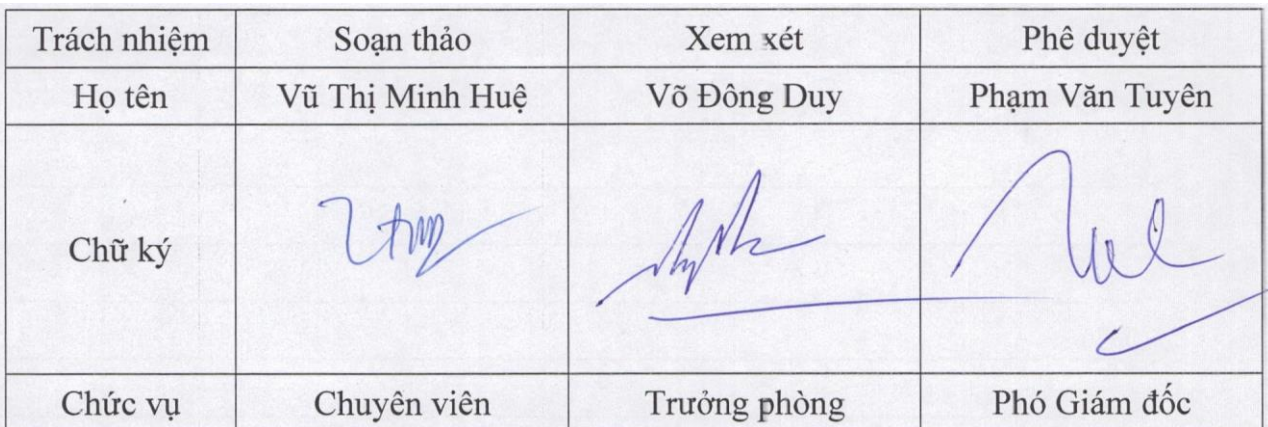 Trách nhiệm Soạn thảo Xem xét Phê duyệt
Họ tên Vũ Thị Minh Huệ Võ Đông Duy Phạm Văn Tuyên
Chữ ký
Chức vụ Chuyên viên Trưởng phòng Phó Giám đốc